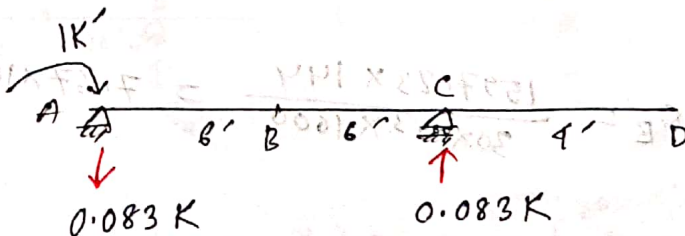 1K'
A 6' B 6' C 4' D
0.083 K 0.083 K